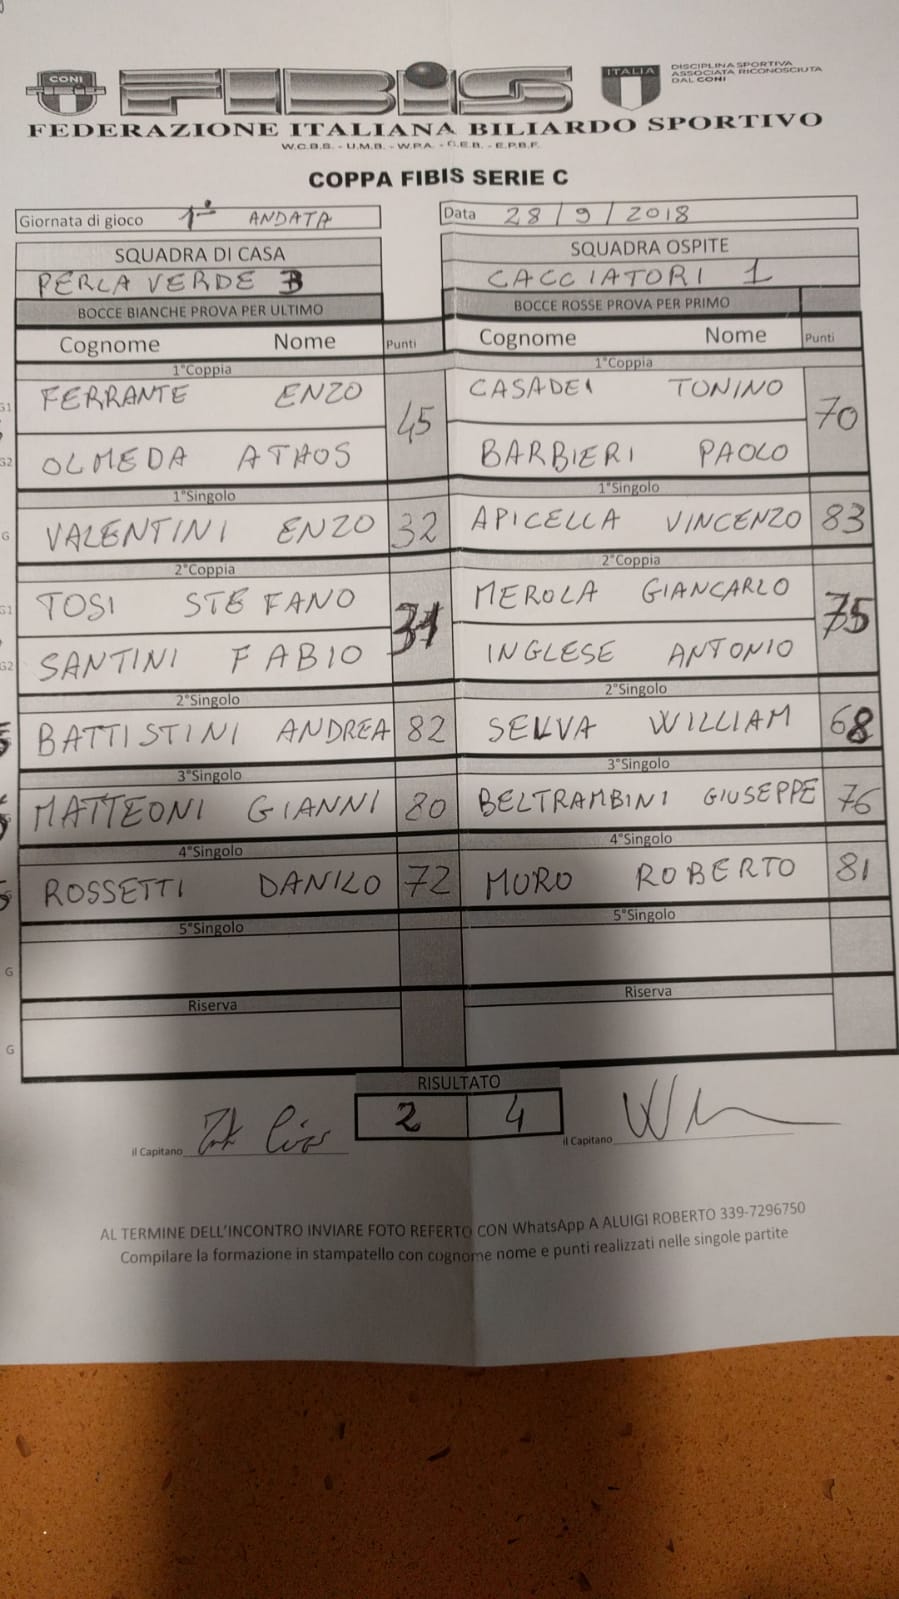 CONI
FIBIS
ITALIA
DISCIPLINA SPORTIVA
ASSOCIATA RICONOSCIUTA
DAL CONI
FEDERAZIONE ITALIANA BILIARDO SPORTIVO
W.C.B.S. - U.M.B. - W.P.A. - C.E.B. - E.P.B.F.
COPPA FIBIS SERIE C
Giornata di gioco 1ª ANDATA Data 28/9/2018
SQUADRA DI CASA SQUADRA OSPITE
PERLA VERDE B CACCIATORI 1
BOCCE BIANCHE PROVA PER ULTIMO BOCCE ROSSE PROVA PER PRIMO
Cognome Nome Punti Cognome Nome Punti
1°Coppia 1°Coppia
G1 FERRANTE ENZO 45 CASADEI TONINO 70
G2 OLMEDA ATHOS BARBIERI PAOLO
1°Singolo 1°Singolo
G VALENTINI ENZO 32 APICELLA VINCENZO 83
2°Coppia 2°Coppia
G1 TOSI STEFANO 31 MEROLA GIANCARLO 75
G2 SANTINI FABIO INGLESE ANTONIO
2°Singolo 2°Singolo
BATTISTINI ANDREA 82 SELVA WILLIAM 68
3°Singolo 3°Singolo
MATTEONI GIANNI 80 BELTRAMBINI GIUSEPPE 76
4°Singolo 4°Singolo
ROSSETTI DANILO 72 MURO ROBERTO 81
5°Singolo 5°Singolo
G
Riserva Riserva
G
RISULTATO
2 4
il Capitano il Capitano
AL TERMINE DELL'INCONTRO INVIARE FOTO REFERTO CON WhatsApp A ALUIGI ROBERTO 339-7296750
Compilare la formazione in stampatello con cognome nome e punti realizzati nelle singole partite